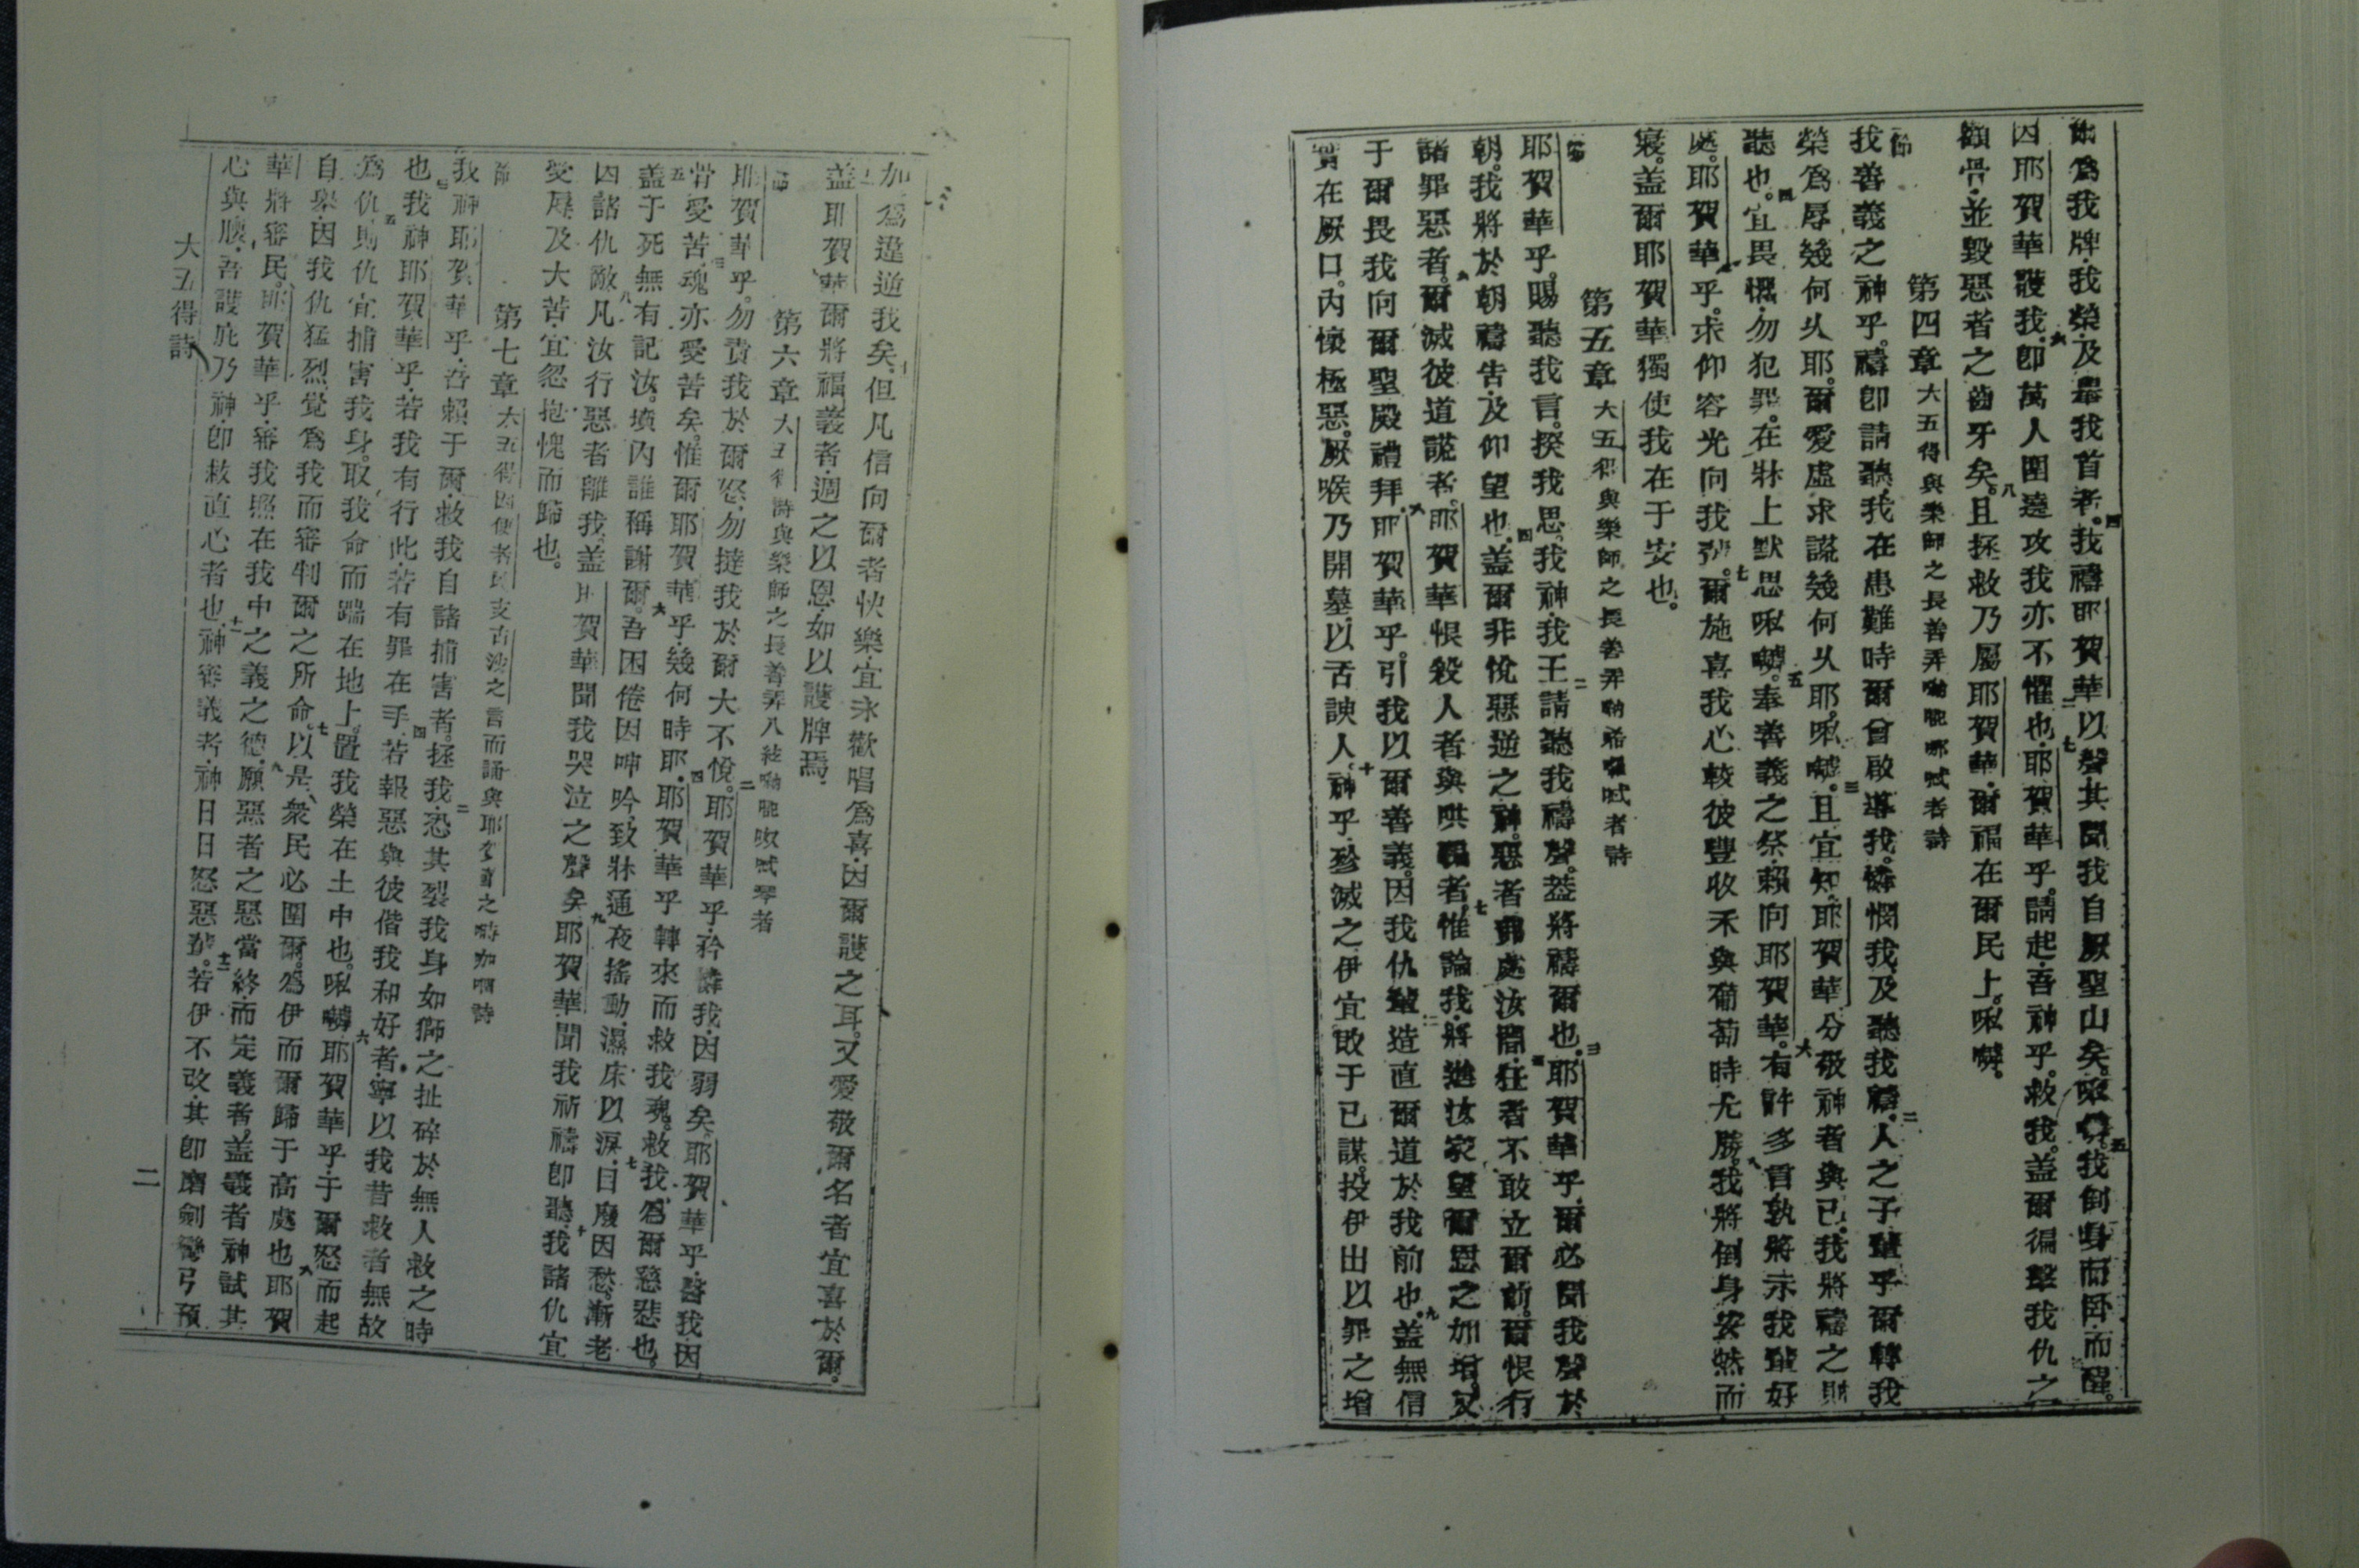 爾爲我牌、我榮、及舉我首者。四我禱耶賀華以聲、其聞我自厥聖山矣。㖿𠿕。五我倒身而臥、而醒。
因耶賀華護我。六卽萬人圍遶攻我、亦不懼也。七耶賀華乎。請起、吾神乎。救我。蓋爾徧擊我仇之
顴骨、並毀惡者之齒牙矣。八且拯救乃屬耶賀華、爾福在爾民上。
第四章 大五得與樂師之長善弄 者詩
節
我善義之神乎。禱卽請聽、我在患難時爾曾啟導我。憐憫我、及聽我禱。二人之子輩乎、爾轉我
榮爲辱幾何久耶。爾愛虛求謊幾何久耶。三且宜知耶賀華分敬神者與已、我將禱之時
聽也。四宜畏懼、勿犯罪。在牀上默思 。五奉善義之祭、賴向耶賀華。六有許多言、孰將示我輩好
處。耶賀華乎。求仰容光向我 。七爾施喜我心、較彼豐收禾與葡萄時尤勝。八我將倒身安然而
寢。蓋爾耶賀華獨使我在于安也。
第五章 大五得與樂師之長善弄 者詩
節
耶賀華乎。賜聽我言。揆我思。二我神、我王、請聽我禱聲。蓋將禱爾也。三耶賀華乎、爾必聞我聲於
朝。我將於朝禱告、及仰望也。四蓋爾非悅惡逆之神。惡者弗處汝間。五狂者不敢立爾前。爾恨行
諸罪惡者。六爾滅彼道謊者。耶賀華恨殺人者與哄騙者。七惟論我、將進汝家、望爾恩之加增、又
于爾畏、我向爾聖殿禮拜。八耶賀華乎。引我以爾善義。因我仇輩、造直爾道於我前也。九蓋無信
實在厥口。內懷極惡。厥喉乃開墓、以舌諛人。十神乎、殄滅之、伊宜敗于已謀。投伊出以罪之增
加、爲違逆我矣。十一但凡信向爾者快樂、宜永歡唱爲喜、因爾護之耳。又愛敬爾名者宜喜於爾。
十二蓋耶賀華爾將福義者、週之以恩、如以護牌焉。
第六章 大五得詩與樂師之長善弄八絃 琴者
節
耶賀華乎。勿責我於爾怒、勿撻我於爾大不悅。二耶賀華乎、矜憐我、因弱矣。耶賀華乎、醫我、因
骨受苦。三魂亦受苦矣。惟爾耶賀華乎、幾何時耶。四耶賀華乎、轉來而救我魂。救我、爲爾慈悲也。
五蓋于死無有記汝。墳內誰稱謝爾。六吾困倦因呻吟、致牀通夜搖動、濕床以淚。七目廢因愁。漸老
因諸仇敵。八凡汝行惡者離我。蓋耶賀華聞我哭泣之聲矣。九耶賀華聞我祈禱卽聽。十我諸仇宜
受辱及大苦、宜忽抱愧而歸也。
第七章 大五得因便者 支古沙之言而誦與耶賀華之 詩
節
我神耶賀華乎、吾賴于爾、救我自諸捕害者。拯我、二恐其裂我身如獅之扯碎於無人救之時
也。三我神耶賀華乎、若我有行此、若有罪在手、四若報惡與彼偕我和好者、寧以我昔救者無故
爲仇、五則仇宜捕害我身。取我命而踹在地上。置我榮在土中也。 六耶賀華乎、于爾怒而起
自舉、因我仇猛烈、覺爲我而審判爾之所命。七以是、衆民必圍爾。爲伊而爾歸于高處也。八耶賀
華將審民。耶賀華乎、審我照在我中之義之德。九願惡者之惡當終、而定義者。蓋義者神試其
心與腹。十吾護庇乃神、卽救直心者也。十一神審義者、神日日怒惡 。十二若伊不改、其卽磨劍彎弓預
大五得詩
二